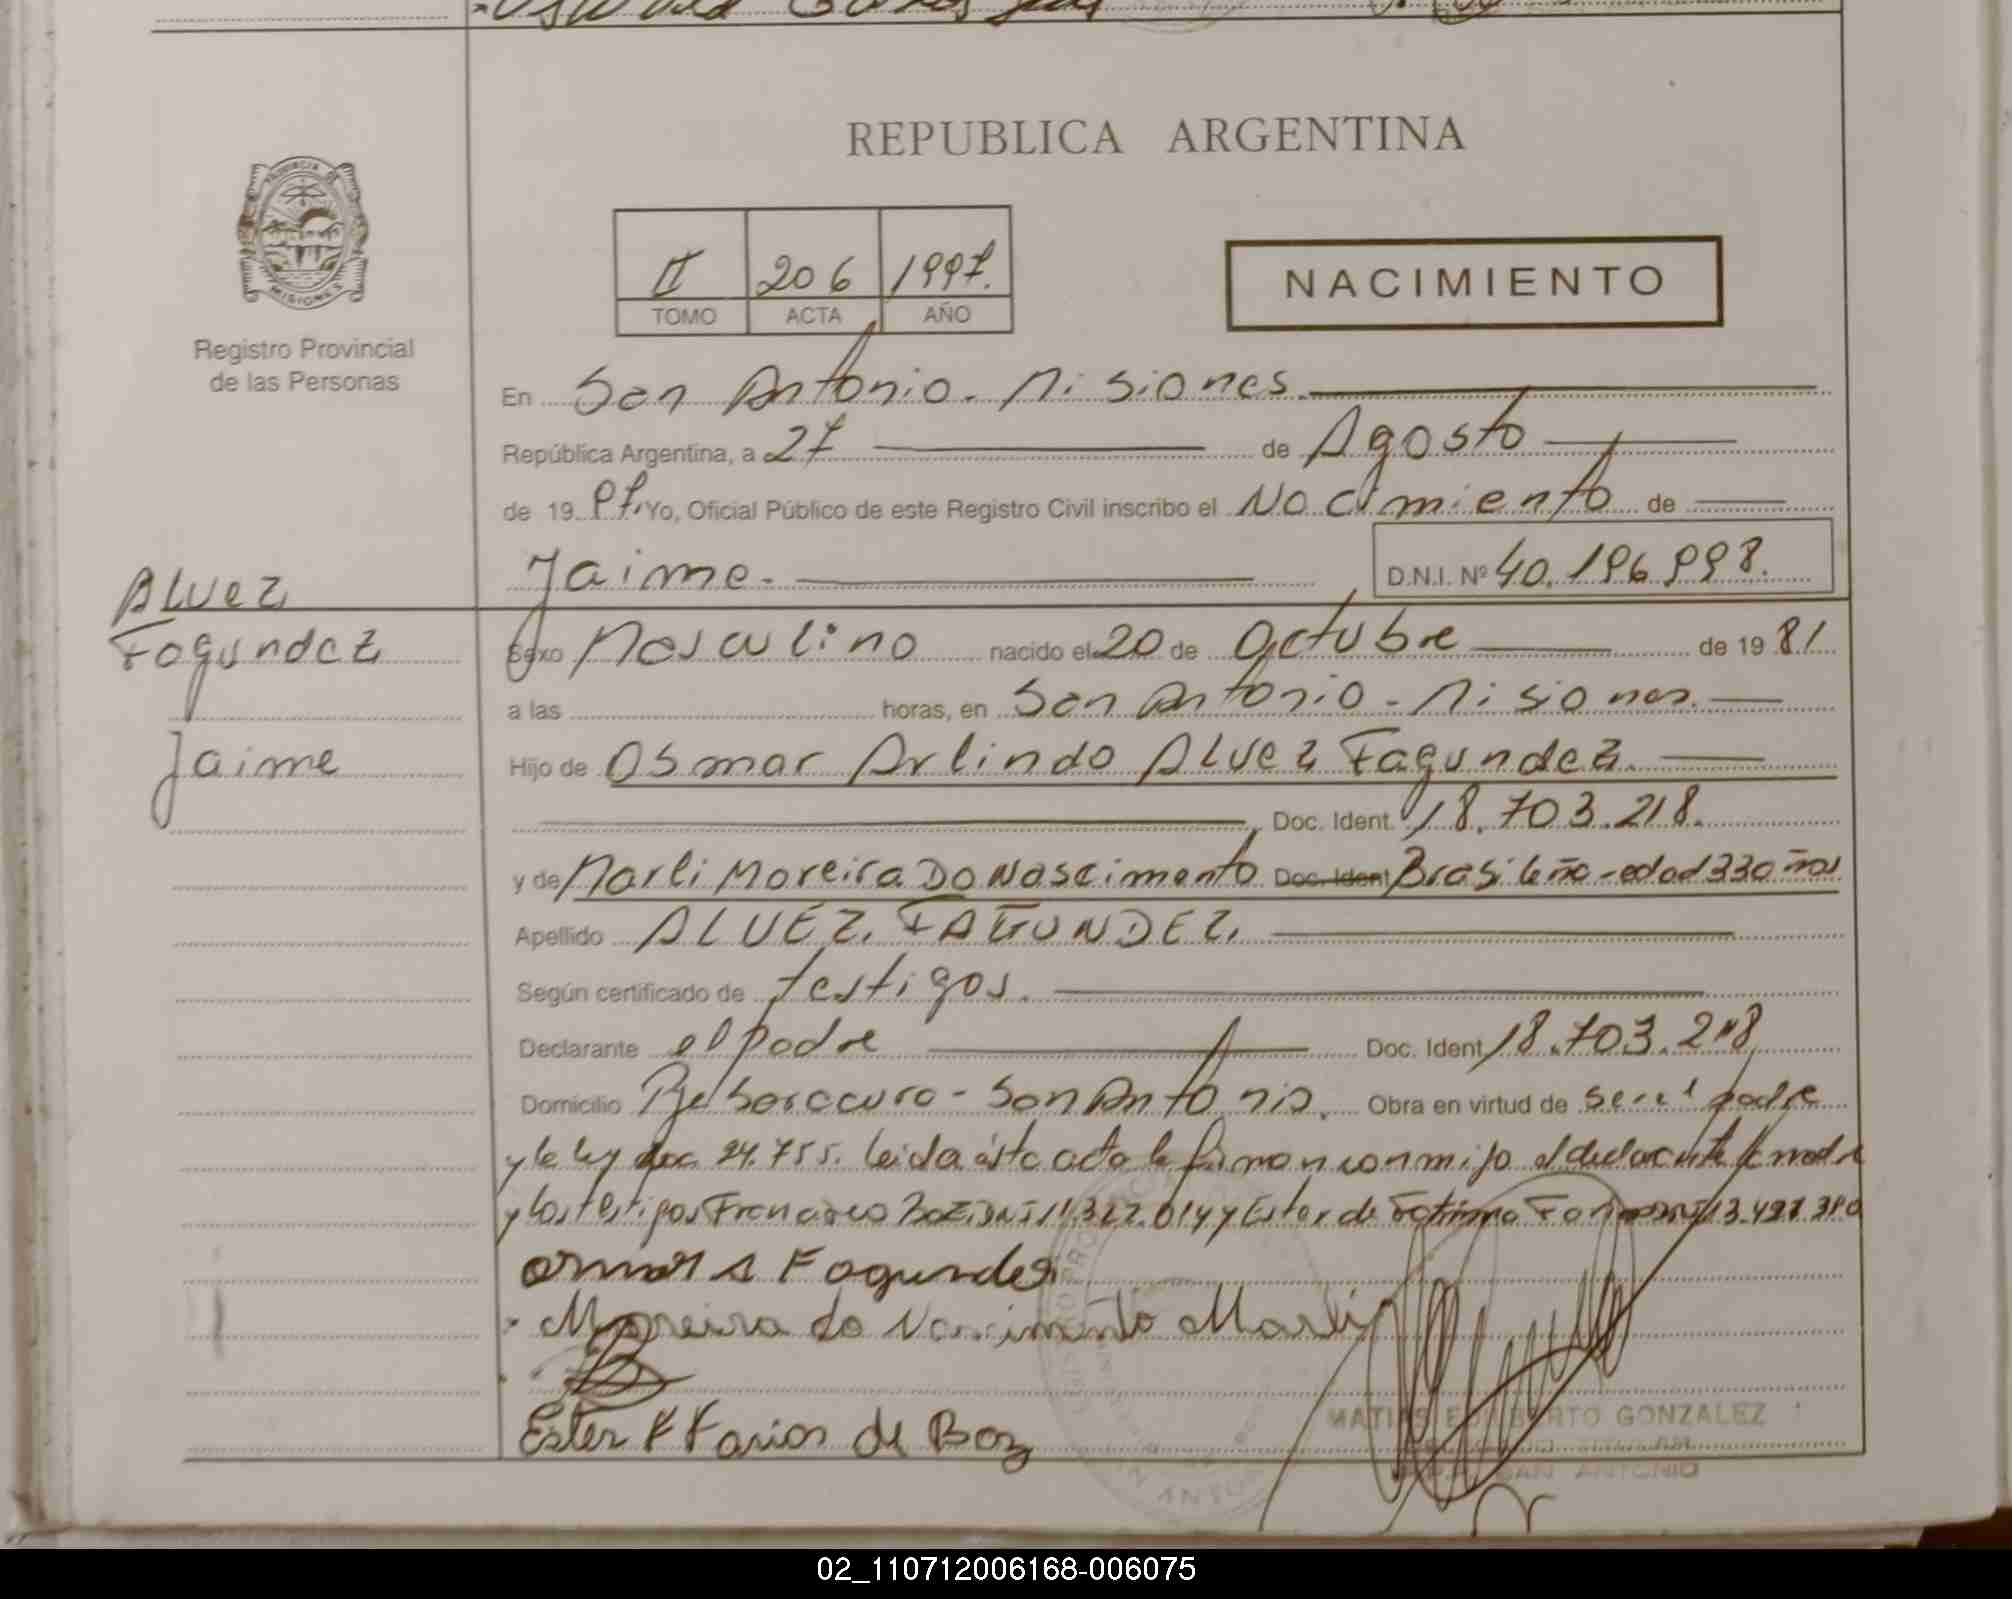 REPUBLICA ARGENTINA
PROVINCIA DE
MISIONES
Registro Provincial
de las Personas
II 206 1997.
TOMO ACTA AÑO
NACIMIENTO
En San Antonio. Misiones.
República Argentina, a 27 de Agosto
de 19 97. Yo, Oficial Público de este Registro Civil inscribo el Nacimiento de
Jaime. D.N.I. Nº 40.196.998.
Alvez
Fagundez
Jaime
Sexo Masculino nacido el 20 de Octubre de 19 81
a las horas, en San Antonio - Misiones.
Hijo de Osmar Arlindo Alvez Fagundez.
Doc. Ident. 18.703.218.
y de Marli Moreira Do Nascimento Doc. Ident Brasileña - edad 33 años
Apellido ALVEZ, FAGUNDEZ,
Según certificado de testigos.
Declarante el padre Doc. Ident 18.703.218
Domicilio Pje Boracuro - San Antonio. Obra en virtud de ser el padre
y la ley 24.755. leida ésta acta la firman conmigo el declarante la madre
y los testigos Francisco Boz DNI 11.327.014 y Ester de Fatima Farias DNI 13.497.380
osmar A Fagundes
Moreira do Nascimento Marli
Ester F Farias de Boz
MATIAS EDILBERTO GONZALEZ
SAN ANTONIO
02_110712006168-006075